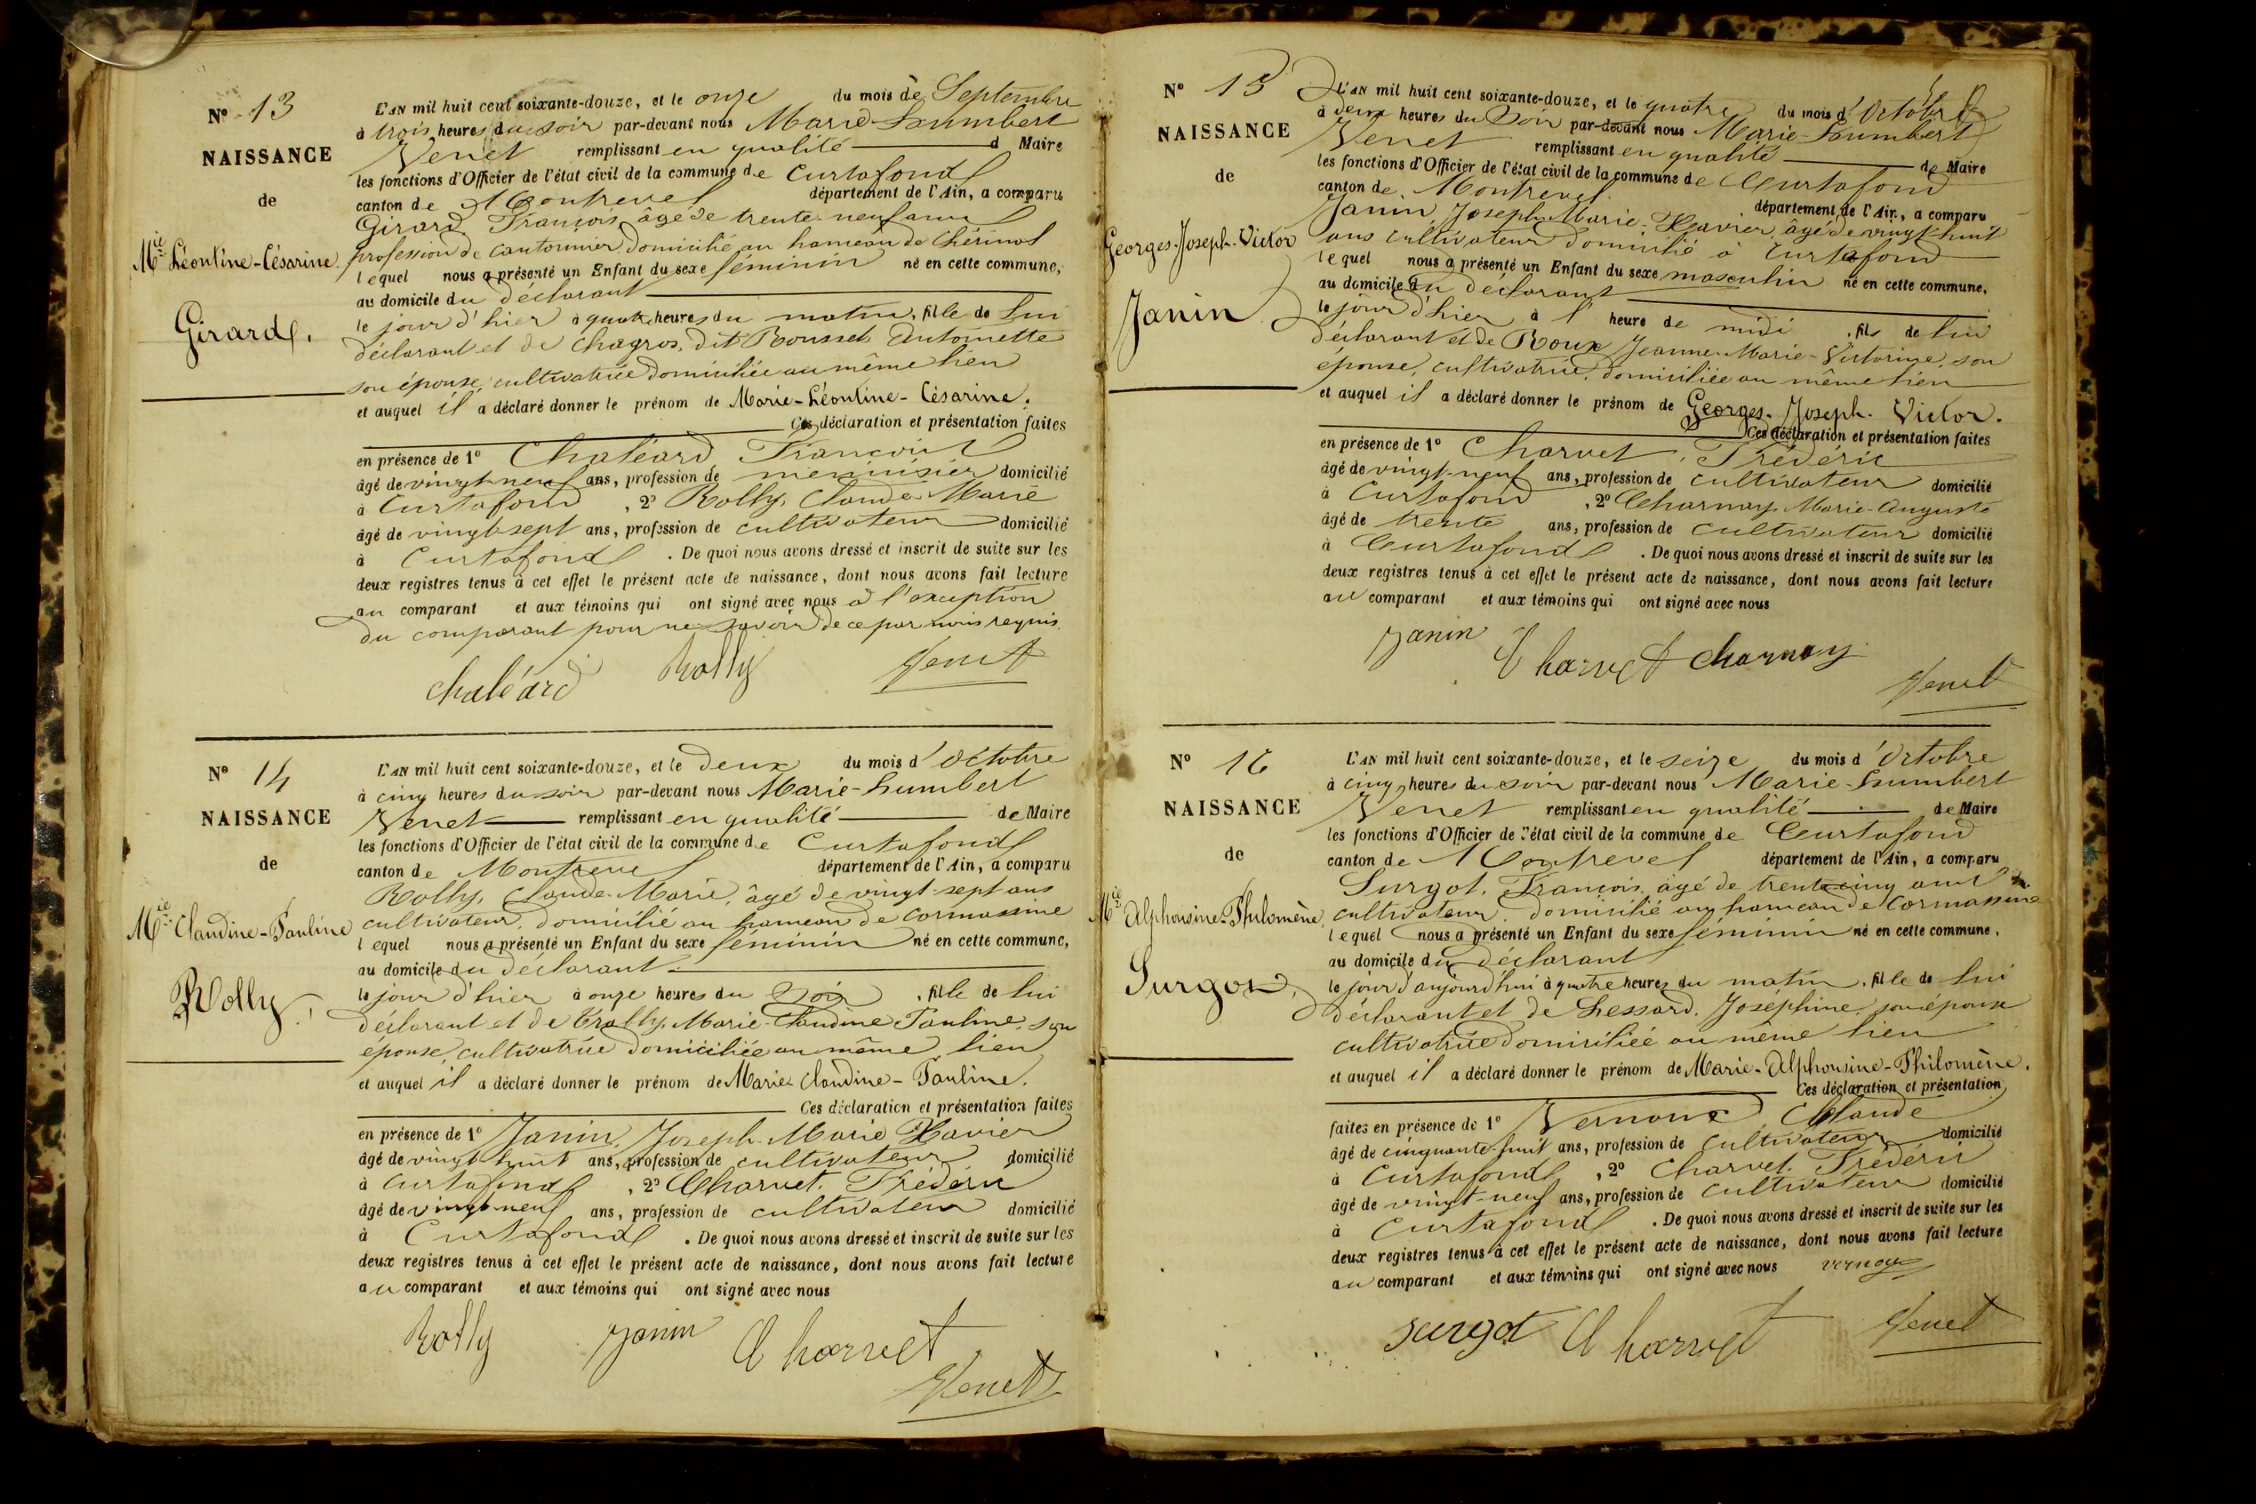 Nº 13
NAISSANCE
de
Mie Léontine-Césarine
Girard.
L'AN mil huit cent soixante-douze, et le onze du mois de Septembre
à trois heures du soir par-devant nous Marie-Humbert
Venet remplissant en qualité d Maire
les fonctions d'Officier de l'état civil de la commune de Curtafond
canton de Montrevel département de l'Ain, a comparu
Girard François âgé de trente-neuf ans
profession de cantonnier domicilié au hameau de Chérinal
lequel nous a présenté un Enfant du sexe féminin né en cette commune,
au domicile du déclarant
le jour d'hier à quatre heures du matin, fille de lui
déclarant et de Chagros, dit Rousset Antoinette
son épouse, cultivatrice domiciliée au même lieu
et auquel il a déclaré donner le prénom de Marie-Léontine-Césarine.
Ces déclaration et présentation faites
en présence de 1º Chaléard François
âgé de vingt-neuf ans, profession de menuisier domicilié
à Curtafond, 2º Rolly, Claude-Marie
âgé de vingt-sept ans, profession de cultivateur domicilié
à Curtafond. De quoi nous avons dressé et inscrit de suite sur les
deux registres tenus à cet effet le présent acte de naissance, dont nous avons fait lecture
au comparant et aux témoins qui ont signé avec nous à l'exception
du comparant pour ne savoir de ce par nous requis.
Chaléard Rolly Venet
Nº 14
NAISSANCE
de
Mie Claudine-Pauline
Rolly.
L'AN mil huit cent soixante-douze, et le deux du mois d'Octobre
à cinq heures du soir par-devant nous Marie-Humbert
Venet remplissant en qualité de Maire
les fonctions d'Officier de l'état civil de la commune de Curtafond
canton de Montrevel département de l'Ain, a comparu
Rolly, Claude-Marie, âgé de vingt-sept ans
cultivateur, domicilié au hameau de Cormassine
lequel nous a présenté un Enfant du sexe féminin né en cette commune,
au domicile du déclarant
le jour d'hier à onze heures du soir, fille de lui
déclarant et de Brally, Marie-Claudine Pauline, son
épouse, cultivatrice domiciliée au même lieu
et auquel il a déclaré donner le prénom de Marie-Claudine-Pauline.
Ces déclaration et présentation faites
en présence de 1º Janin, Joseph-Marie Xavier
âgé de vingt-huit ans, profession de cultivateur domicilié
à Curtafond, 2º Charvet, Frédéric
âgé de vingt-neuf ans, profession de cultivateur domicilié
à Curtafond. De quoi nous avons dressé et inscrit de suite sur les
deux registres tenus à cet effet le présent acte de naissance, dont nous avons fait lecture
au comparant et aux témoins qui ont signé avec nous
Rolly Janin Charvet
Venet
Nº 15
NAISSANCE
de
Georges-Joseph-Victor
Janin
L'AN mil huit cent soixante-douze, et le quatre du mois d'Octobre
à deux heures du soir par-devant nous Marie-Humbert
Venet remplissant en qualité de Maire
les fonctions d'Officier de l'état civil de la commune de Curtafond
canton de Montrevel département de l'Ain, a comparu
Janin, Joseph-Marie, Xavier, âgé de vingt-huit
ans cultivateur domicilié à Curtafond
lequel nous a présenté un Enfant du sexe masculin né en cette commune.
au domicile du déclarant
le jour d'hier à l'heure de midi, fils de lui
déclarant et de Roux Jeanne-Marie-Victorine, son
épouse, cultivatrice, domiciliée au même lieu
et auquel il a déclaré donner le prénom de Georges-Joseph-Victor.
Ces déclaration et présentation faites
en présence de 1º Charvet, Frédéric
âgé de vingt-neuf ans, profession de cultivateur domicilié
à Curtafond, 2º Charnay, Marie-Auguste
âgé de trente ans, profession de cultivateur domicilié
à Curtafond. De quoi nous avons dressé et inscrit de suite sur les
deux registres tenus à cet effet le présent acte de naissance, dont nous avons fait lecture
au comparant et aux témoins qui ont signé avec nous
Janin Charvet Charnay
Venet
Nº 16
NAISSANCE
de
Mie Alphonsine-Philomène
Surgot.
L'AN mil huit cent soixante-douze, et le seize du mois d'Octobre
à cinq heures du soir par-devant nous Marie-Humbert
Venet remplissant en qualité de Maire
les fonctions d'Officier de l'état civil de la commune de Curtafond
canton de Montrevel département de l'Ain, a comparu
Surgot, François, âgé de trente-cinq ans
cultivateur, domicilié au hameau de Cormassine
lequel nous a présenté un Enfant du sexe féminin né en cette commune,
au domicile du déclarant
le jour d'aujourd'hui à quatre heures du matin, fille de lui
déclarant et de Lessard, Josephine, son épouse
cultivatrice domiciliée au même lieu
et auquel il a déclaré donner le prénom de Marie-Alphonsine-Philomène.
Ces déclaration et présentation
faites en présence de 1º Vernoux, Claude
âgé de cinquante-huit ans, profession de cultivateur domicilié
à Curtafond, 2º Charvet, Frédéric
âgé de vingt-neuf ans, profession de cultivateur domicilié
à Curtafond. De quoi nous avons dressé et inscrit de suite sur les
deux registres tenus à cet effet le présent acte de naissance, dont nous avons fait lecture
au comparant et aux témoins qui ont signé avec nous vernoux
Surgot Charvet Venet